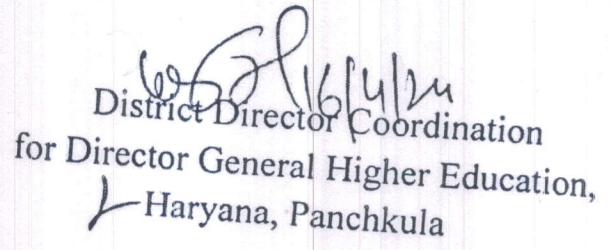 16/4/24
District Director Coordination
for Director General Higher Education,
Haryana, Panchkula